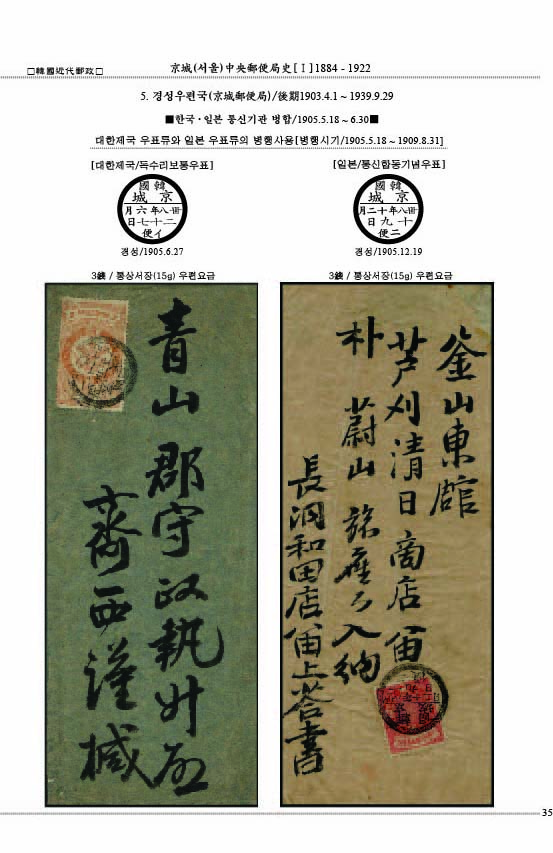 □韓國近代郵政□
京城(서울)中央郵便局史[Ⅰ]1884 - 1922
5. 경성우편국(京城郵便局)/後期1903.4.1 ~ 1939.9.29
■한국·일본 통신기관 병합/1905.5.18 ~ 6.30■
대한제국 우표류와 일본 우표류의 병행사용[병행시기/1905.5.18 ~ 1909.8.31]
[대한제국/독수리보통우표]
韓國
京城
卅八年六月
二十七日
イ便
경성/1905.6.27
3錢 / 통상서장(15g) 우편요금
靑山郡守政執
齋西謹椷
[일본/통신합동기념우표]
韓國
京城
卅八年十二月
十九日
二便
경성/1905.12.19
3錢 / 통상서장(15g) 우편요금
釜山東館
芦刈清日商店
朴蔚山 入納
長洞和田店 上答書
35